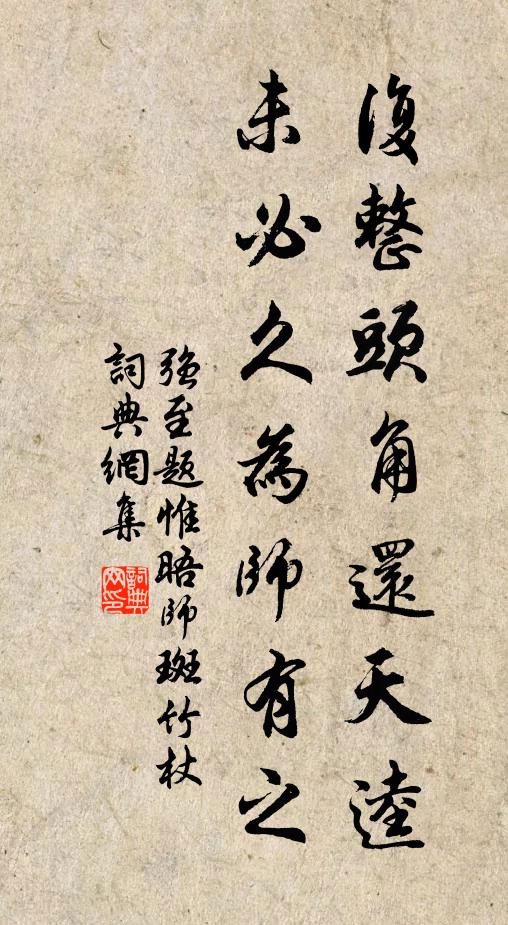 復整頭角還天逵
未必久為師有之
強至題惟晤師斑竹杖
詞典網集
詞典網印